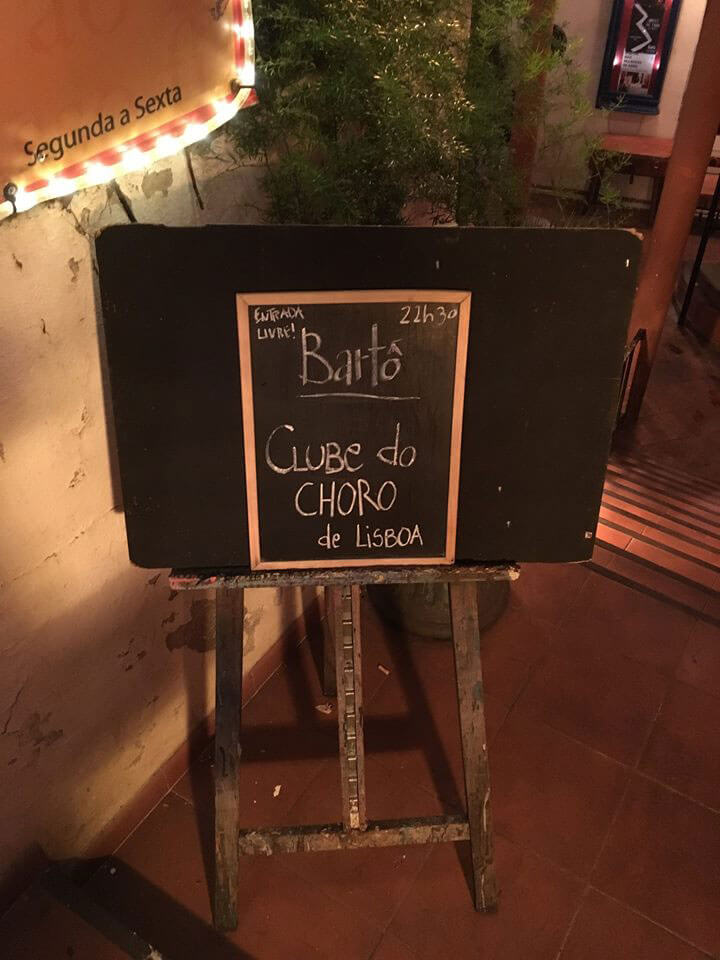 Segunda a Sexta
ENTRADA 22h30
LIVRE!
Bartô
CLUBE do
CHORO
de LISBOA